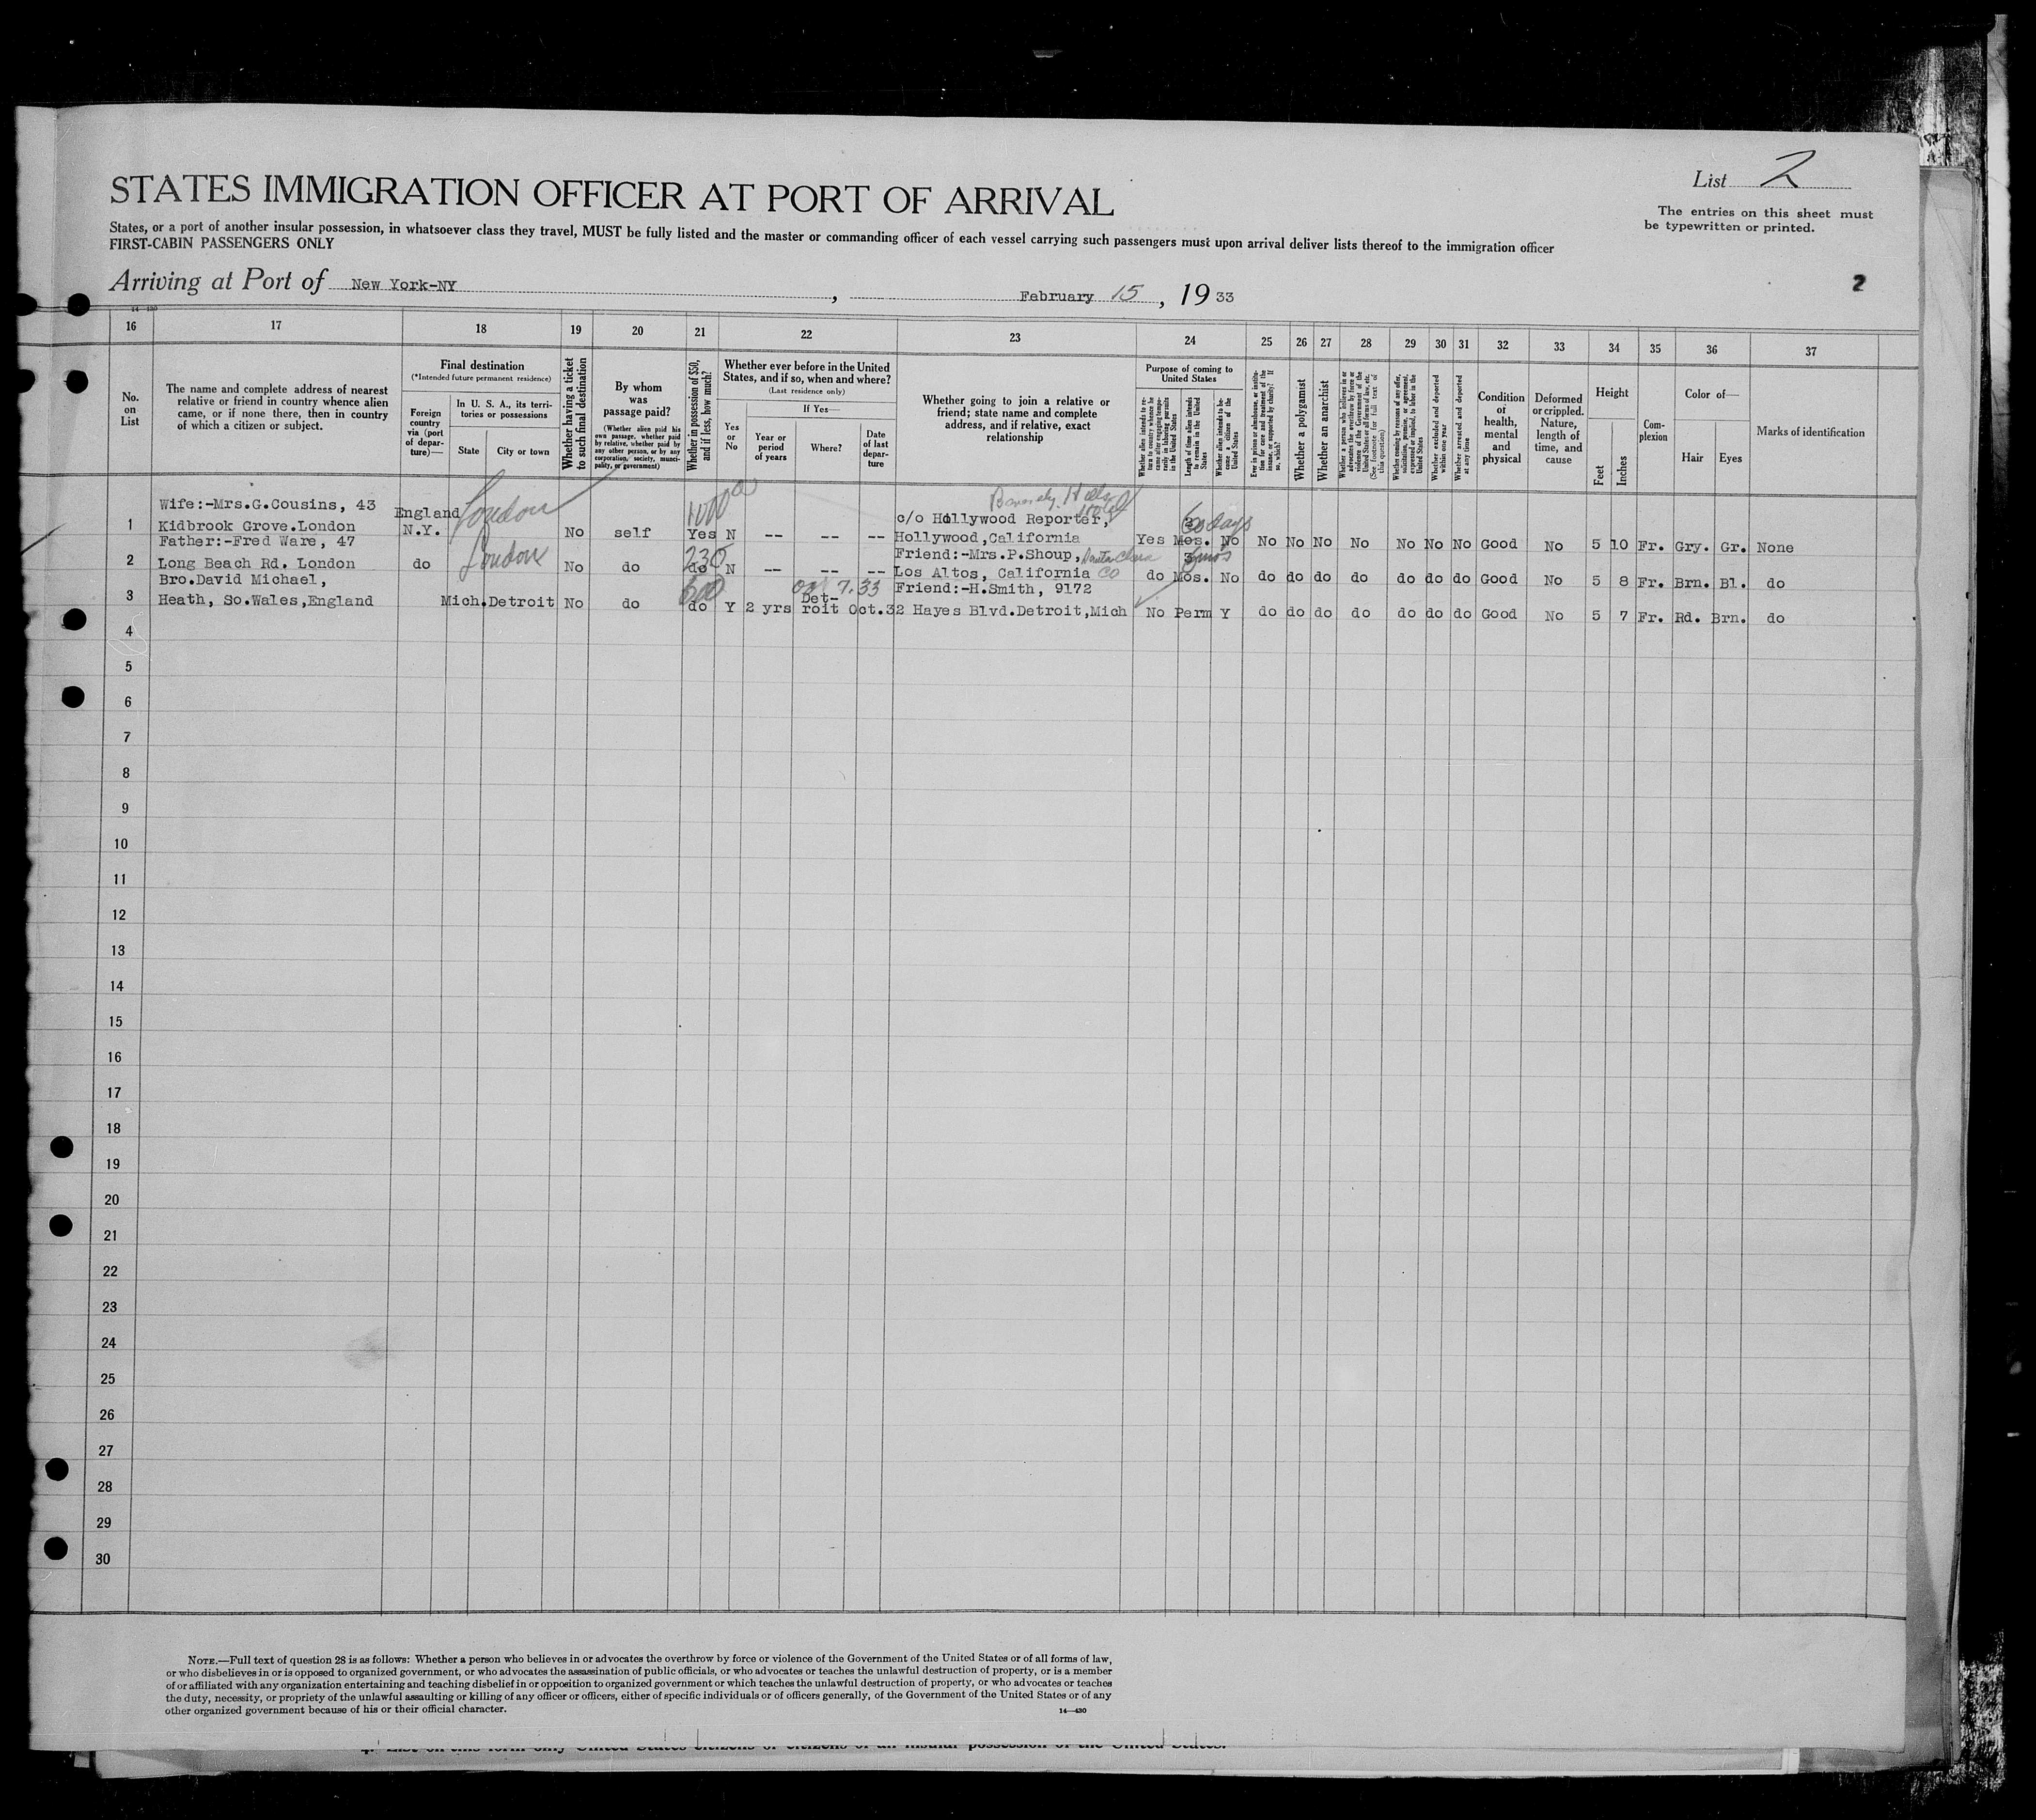 List 2
STATES IMMIGRATION OFFICER AT PORT OF ARRIVAL
The entries on this sheet must
be typewritten or printed.
States, or a port of another insular possession, in whatsoever class they travel, MUST be fully listed and the master or commanding officer of each vessel carrying such passengers must upon arrival deliver lists thereof to the immigration officer
FIRST-CABIN PASSENGERS ONLY
Arriving at Port of New York-NY, February 15, 1933
2
14-430
16 17 18 19 20 21 22 23 24 25 26 27 28 29 30 31 32 33 34 35 36 37
No.
on
List
The name and complete address of nearest
relative or friend in country whence alien
came, or if none there, then in country
of which a citizen or subject.
Final destination
(*Intended future permanent residence)
Foreign
country
via (port
of depar-
ture)—
In U. S. A., its terri-
tories or possessions
State
City or town
Whether having a ticket
to such final destination
By whom
was
passage paid?
(Whether alien paid his
own passage, whether paid
by relative, whether paid by
any other person, or by any
corporation, society, munci-
pality, or government)
Whether in possession of $50,
and if less, how much?
Whether ever before in the United
States, and if so, when and where?
(Last residence only)
Yes
or
No
If Yes—
Year or
period
of years
Where?
Date
of last
depar-
ture
Whether going to join a relative or
friend; state name and complete
address, and if relative, exact
relationship
Purpose of coming to
United States
Whether alien intends to re-
turn to country whence he
came after engaging tempo-
rarily in laboring pursuits
in the United States
Length of time alien intends
to remain in the United
States
Whether alien intends to be-
come a citizen of the
United States
Ever in prison or almshouse, or institu-
tion for care and treatment of the
insane, or supported by charity? If
so, which?
Whether a polygamist
Whether an anarchist
Whether a person who believes in or
advocates the overthrow by force or
violence of the Government of the
United States or all forms of law, etc.
(See footnote for full text of
this question)
Whether coming by reasons of any offer,
solicitation, promise, or agreement,
expressed or implied, to labor in the
United States
Whether excluded and deported
within one year
Whether arrested and deported
at any time
Condition
of
health,
mental
and
physical
Deformed
or crippled.
Nature,
length of
time, and
cause
Height
Feet
Inches
Com-
plexion
Color of—
Hair
Eyes
Marks of identification
Wife:-Mrs.G.Cousins, 43 England London 1000 00 Beverly Hills Hotel
1 Kidbrook Grove.London N.Y. No self Yes N -- -- -- c/o Hollywood Reporter,
Hollywood,California Yes 3 Mos. 60 days No No No No No No No No Good No 5 10 Fr. Gry. Gr. None
Father:-Fred Ware, 47 London 230 Friend:-Mrs.P.Shoup, Santa Clara
2 Long Beach Rd. London do No do do N -- -- -- Los Altos, California Co do 3 Mos. 6 mos No do do do do do do do Good No 5 8 Fr. Brn. Bl. do
Bro.David Michael, 500 7.33 Friend:-H.Smith, 9172
3 Heath, So.Wales,England Mich. Detroit No do do Y 2 yrs Det-roit Oct.32 Hayes Blvd.Detroit,Mich No Perm Y do do do do do do do Good No 5 7 Fr. Rd. Brn. do
4
5
6
7
8
9
10
11
12
13
14
15
16
17
18
19
20
21
22
23
24
25
26
27
28
29
30
NOTE.—Full text of question 28 is as follows: Whether a person who believes in or advocates the overthrow by force or violence of the Government of the United States or of all forms of law,
or who disbelieves in or is opposed to organized government, or who advocates the assassination of public officials, or who advocates or teaches the unlawful destruction of property, or is a member
of or affiliated with any organization entertaining and teaching disbelief in or opposition to organized government or which teaches the unlawful destruction of property, or who advocates or teaches
the duty, necessity, or propriety of the unlawful assaulting or killing of any officer or officers, either of specific individuals or of officers generally, of the Government of the United States or of any
other organized government because of his or their official character.
14—430
4. List on this form only United States citizens or citizens of an insular possession of the United States.